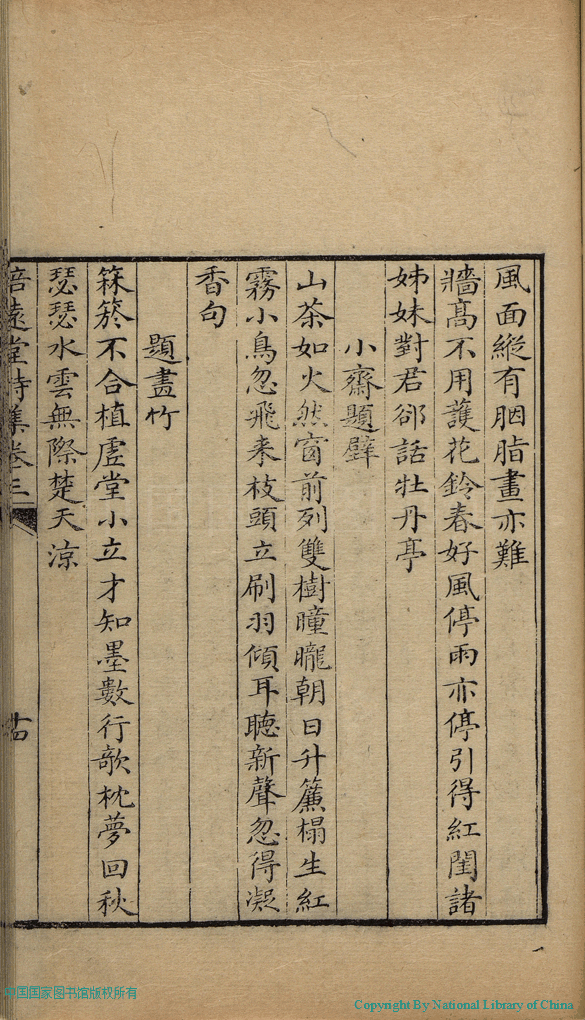 風面縱有胭脂畫亦難
牆髙不用護花鈴春好風停雨亦停引得紅閨諸
姊妹對君郤話牡丹亭
小齋題壁
山茶如火然窗前列雙樹曈曨朝日升簾榻生紅
霧小鳥忽飛来枝頭立刷羽傾耳聽新聲忽得凝
香句
題畫竹
箖箊不合植虛堂小立才知墨數行歌枕夢回秋
瑟瑟水雲無際楚天涼
培遠堂詩集卷三
古
中国国家图书馆版权所有
Copyright By National Library of China